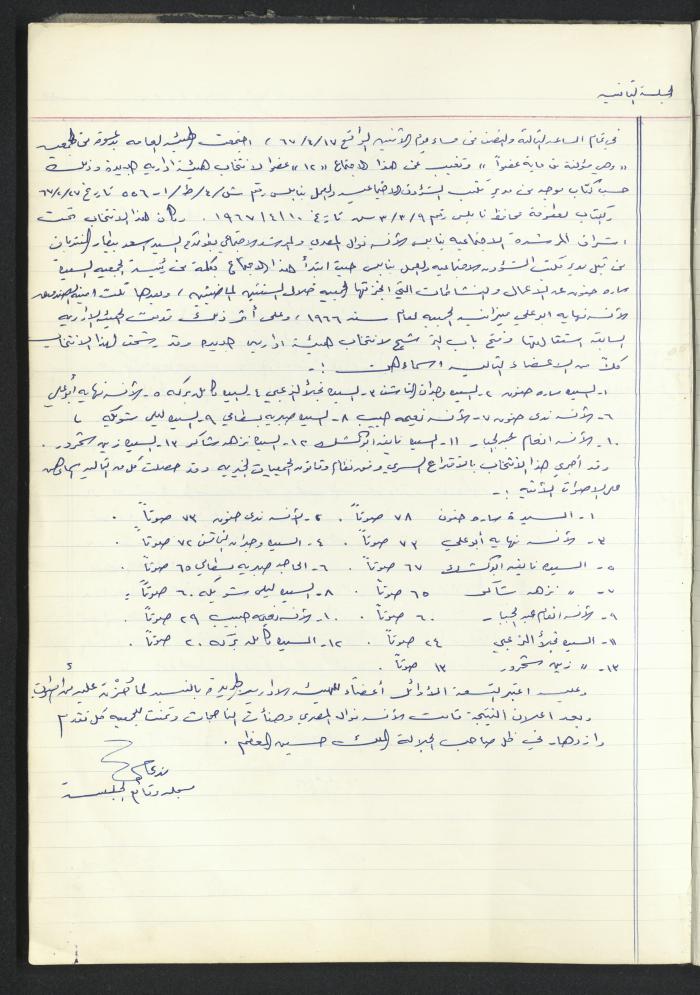 الجلسة الثانية
في تمام الساعة الثالثة والنصف من مساء يوم الاثنين الواقع ٦٧/٤/١٧ ، اجتمعت الهيئة العامة بدعوة من الجمعية
" وهي مؤلفة من ماية عضواً " وتغيب عن هذا الاجتماع " ١٢ " عضوا لانتخاب هيئة ادارية جديدة وذلك
حسب كتاب موجه من مدير مكتب الشؤون الاجتماعية والعمل بنابلس رقم ش ن/٤/ط/١- ٥٥٦ تاريخ ٦٧/٢/٢٧
وكتاب عطوفة محافظ نابلس رقم ٣/٣/٩ تاريخ ١٩٦٧/٤/١٠ . وكان هذا الانتخاب تحت
اشراف المرشدة الاجتماعية بنابلس الآنسة نوال المصري والمرشد الاجتماعي بطولكرم السيد اسعد بيطار المنتدبان
من قبل مدير مكتب الشؤون الاجتماعية والعمل بنابلس حيث ابتدأ هذا الاجتماع بكلمة من رئيسة الجمعية السيدة
ساره حنون عن الاعمال والنشاطات التي انجزتها الجمعية خلال السنتين الماضيتين ، وبعدها تلت امينة الصندوق
الآنسة نهايه ابو علي ميزانية الجمعية لعام سنة ١٩٦٦ ، وعلى أثر ذلك قدمت الهيئة الادارية
السابقة استقالتها وفتح باب الترشيح لانتخاب هيئة ادارية جديدة وقد رشحت لهذا الانتخاب
كلاً من الاعضاء التالية اسماءهن :-
١- السيدة ساره حنون ٢- السيدة وجدان الناشف ٣- السيدة نجلاء الزعبي ٤- السيدة كامله بركه ٥- الآنسه نهايه أبو علي
٦- الآنسه ندى حنون ٧- الآنسه نعيمه حبيب ٨- السيده صبريه بسطامي ٩- السيده ليلى شوبكه
١٠- الآنسه انعام عبد الجبار ١١- السيده نايفه ابو كشك ١٢- السيده نزهه شاكر ١٣- السيده زين شحرور .
وقد أجري هذا الانتخاب بالاقتراع السري وفق نظام وقانون الجمعيات الخيرية وقد حصلت كل من التالية اسماؤهن
على الاصوات الآتية :-
١- السيدة ساره حنون ٧٨ صوتاً . ٢- الآنسه ندى حنون ٧٣ صوتاً .
٣- الآنسه نهايه أبو علي ٧٣ صوتاً . ٤- السيده وجدان الناشف ٧٢ صوتاً .
٥- السيده نايفه ابو كشك ٦٧ صوتاً . ٦- الحاجه صبريه بسطامي ٦٥ صوتاً .
٧- " نزهه شاكر ٦٥ صوتاً . ٨- السيده ليلى شوبكه ٦٠ صوتاً .
٩- الآنسه انعام عبد الجبار ٦٠ صوتاً . ١٠- الآنسه نعيمه حبيب ٢٩ صوتاً .
١١- السيده نجلاء الزعبي ٢٤ صوتاً . ١٢- السيده كامله بركه ٢٠ صوتاً .
١٣- " زين شحرور ١٣ صوتاً .
وعليه اعتبر التسعة الأوائل أعضاءً للهيئة الادارية الجديدة بالنسبة لما حُزنَ عليه من أصوات
وبعد اعلان النتيجة قامت الآنسه نوال المصري وهنأت الناجحات وتمنت للجمعية كل تقدم
وازدهار في ظل صاحب الجلالة الملك حسين المعظم .
مسجلة وقائع الجلسة